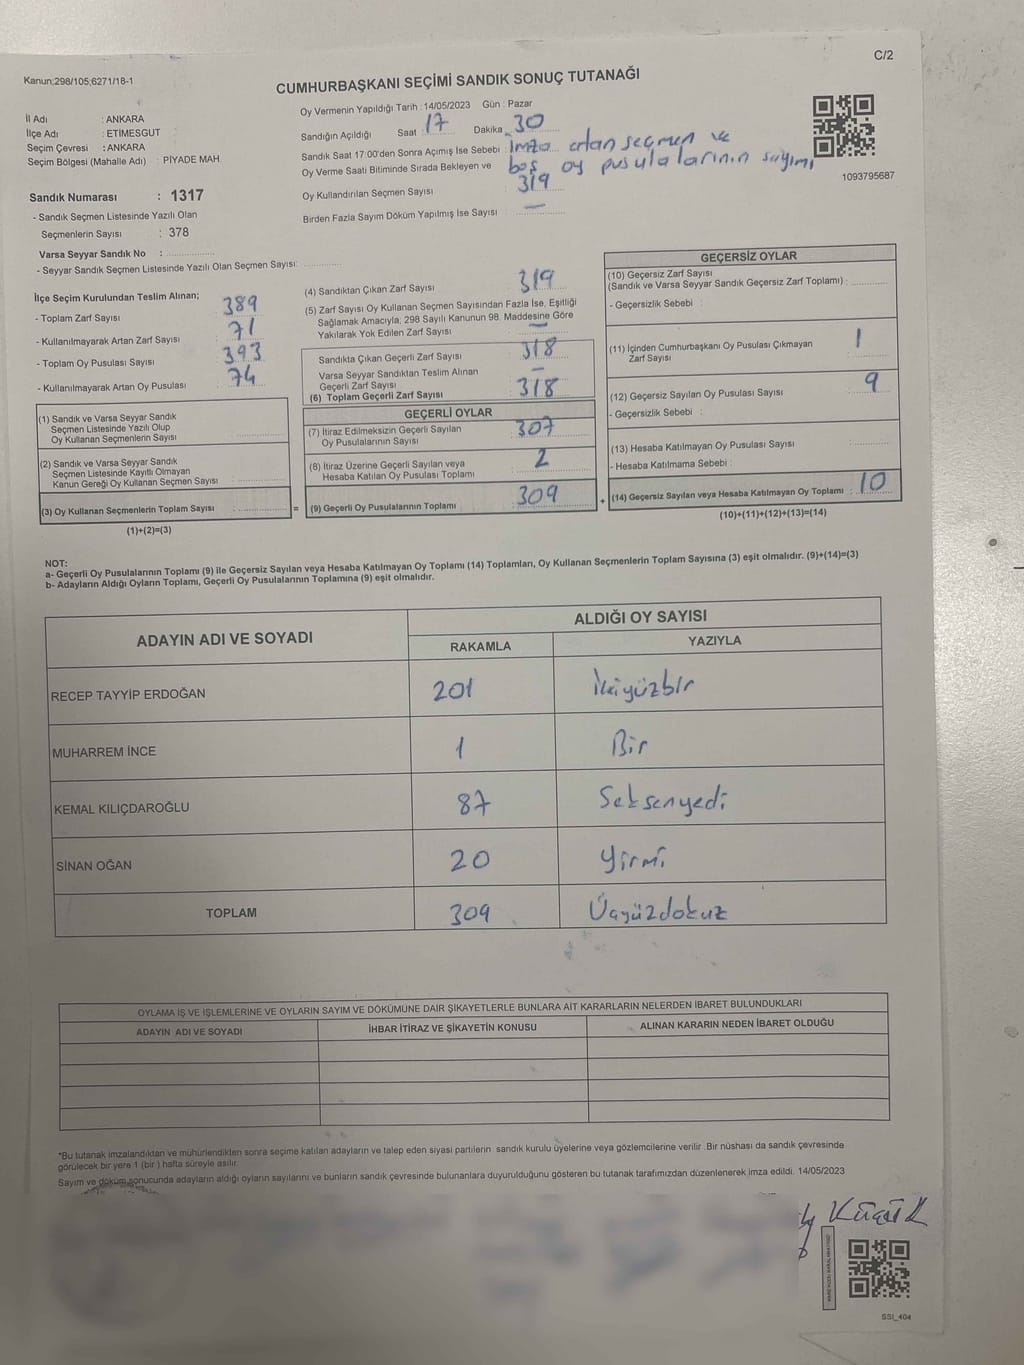 C/2
Kanun:298/105,6271/18-1
CUMHURBAŞKANI SEÇİMİ SANDIK SONUÇ TUTANAĞI
İl Adı : ANKARA
İlçe Adı : ETİMESGUT
Seçim Çevresi : ANKARA
Seçim Bölgesi (Mahalle Adı) : PİYADE MAH.
Oy Vermenin Yapıldığı Tarih : 14/05/2023 Gün : Pazar
Sandığın Açıldığı Saat 17 Dakika 30
Sandık Saat 17:00'den Sonra Açımış İse Sebebi İmza artan seçmen ve
Oy Verme Saati Bitiminde Sırada Bekleyen ve boş oy pusulalarının sayımı
Oy Kullandırılan Seçmen Sayısı 319
Birden Fazla Sayım Döküm Yapılmış İse Sayısı —
1093795687
Sandık Numarası : 1317
- Sandık Seçmen Listesinde Yazılı Olan
Seçmenlerin Sayısı : 378
Varsa Seyyar Sandık No :
- Seyyar Sandık Seçmen Listesinde Yazılı Olan Seçmen Sayısı:
İlçe Seçim Kurulundan Teslim Alınan;
- Toplam Zarf Sayısı 389
- Kullanılmayarak Artan Zarf Sayısı 71
- Toplam Oy Pusulası Sayısı 393
- Kullanılmayarak Artan Oy Pusulası 74
(1) Sandık ve Varsa Seyyar Sandık
Seçmen Listesinde Yazılı Olup
Oy Kullanan Seçmenlerin Sayısı
(2) Sandık ve Varsa Seyyar Sandık
Seçmen Listesinde Kayıtlı Olmayan
Kanun Gereği Oy Kullanan Seçmen Sayısı
(3) Oy Kullanan Seçmenlerin Toplam Sayısı =
(1)+(2)=(3)
(4) Sandıktan Çıkan Zarf Sayısı 319
(5) Zarf Sayısı Oy Kullanan Seçmen Sayısından Fazla İse, Eşitliği
Sağlamak Amacıyla, 298 Sayılı Kanunun 98. Maddesine Göre
Yakılarak Yok Edilen Zarf Sayısı —
Sandıkta Çıkan Geçerli Zarf Sayısı 318
Varsa Seyyar Sandıktan Teslim Alınan
Geçerli Zarf Sayısı —
(6) Toplam Geçerli Zarf Sayısı 318
GEÇERLİ OYLAR
(7) İtiraz Edilmeksizin Geçerli Sayılan
Oy Pusulalarının Sayısı 307
(8) İtiraz Üzerine Geçerli Sayılan veya
Hesaba Katılan Oy Pusulası Toplamı 2
(9) Geçerli Oy Pusulalarının Toplamı 309 +
GEÇERSİZ OYLAR
(10) Geçersiz Zarf Sayısı
(Sandık ve Varsa Seyyar Sandık Geçersiz Zarf Toplamı) :
- Geçersizlik Sebebi :
(11) İçinden Cumhurbaşkanı Oy Pusulası Çıkmayan
Zarf Sayısı 1
(12) Geçersiz Sayılan Oy Pusulası Sayısı 9
- Geçersizlik Sebebi :
(13) Hesaba Katılmayan Oy Pusulası Sayısı
- Hesaba Katılmama Sebebi :
(14) Geçersiz Sayılan veya Hesaba Katılmayan Oy Toplamı : 10
(10)+(11)+(12)+(13)=(14)
NOT:
a- Geçerli Oy Pusulalarının Toplamı (9) ile Geçersiz Sayılan veya Hesaba Katılmayan Oy Toplamı (14) Toplamları, Oy Kullanan Seçmenlerin Toplam Sayısına (3) eşit olmalıdır. (9)+(14)=(3)
b- Adayların Aldığı Oyların Toplamı, Geçerli Oy Pusulalarının Toplamına (9) eşit olmalıdır.
ADAYIN ADI VE SOYADI ALDIĞI OY SAYISI
RAKAMLA YAZIYLA
RECEP TAYYİP ERDOĞAN 201 İkiyüzbir
MUHARREM İNCE 1 Bir
KEMAL KILIÇDAROĞLU 87 Seksenyedi
SİNAN OĞAN 20 Yirmi
TOPLAM 309 Üçyüzdokuz
OYLAMA İŞ VE İŞLEMLERİNE VE OYLARIN SAYIM VE DÖKÜMÜNE DAİR ŞİKAYETLERLE BUNLARA AİT KARARLARIN NELERDEN İBARET BULUNDUKLARI
ADAYIN ADI VE SOYADI İHBAR İTİRAZ VE ŞİKAYETİN KONUSU ALINAN KARARIN NEDEN İBARET OLDUĞU
*Bu tutanak imzalandıktan ve mühürlendikten sonra seçime katılan adayların ve talep eden siyasi partilerin sandık kurulu üyelerine veya gözlemcilerine verilir. Bir nüshası da sandık çevresinde
görülecek bir yere 1 (bir ) hafta süreyle asılır.
Sayım ve döküm sonucunda adayların aldığı oyların sayılarını ve bunların sandık çevresinde bulunanlara duyurulduğunu gösteren bu tutanak tarafımızdan düzenlenerek imza edildi. 14/05/2023
Küçük
SSI_404